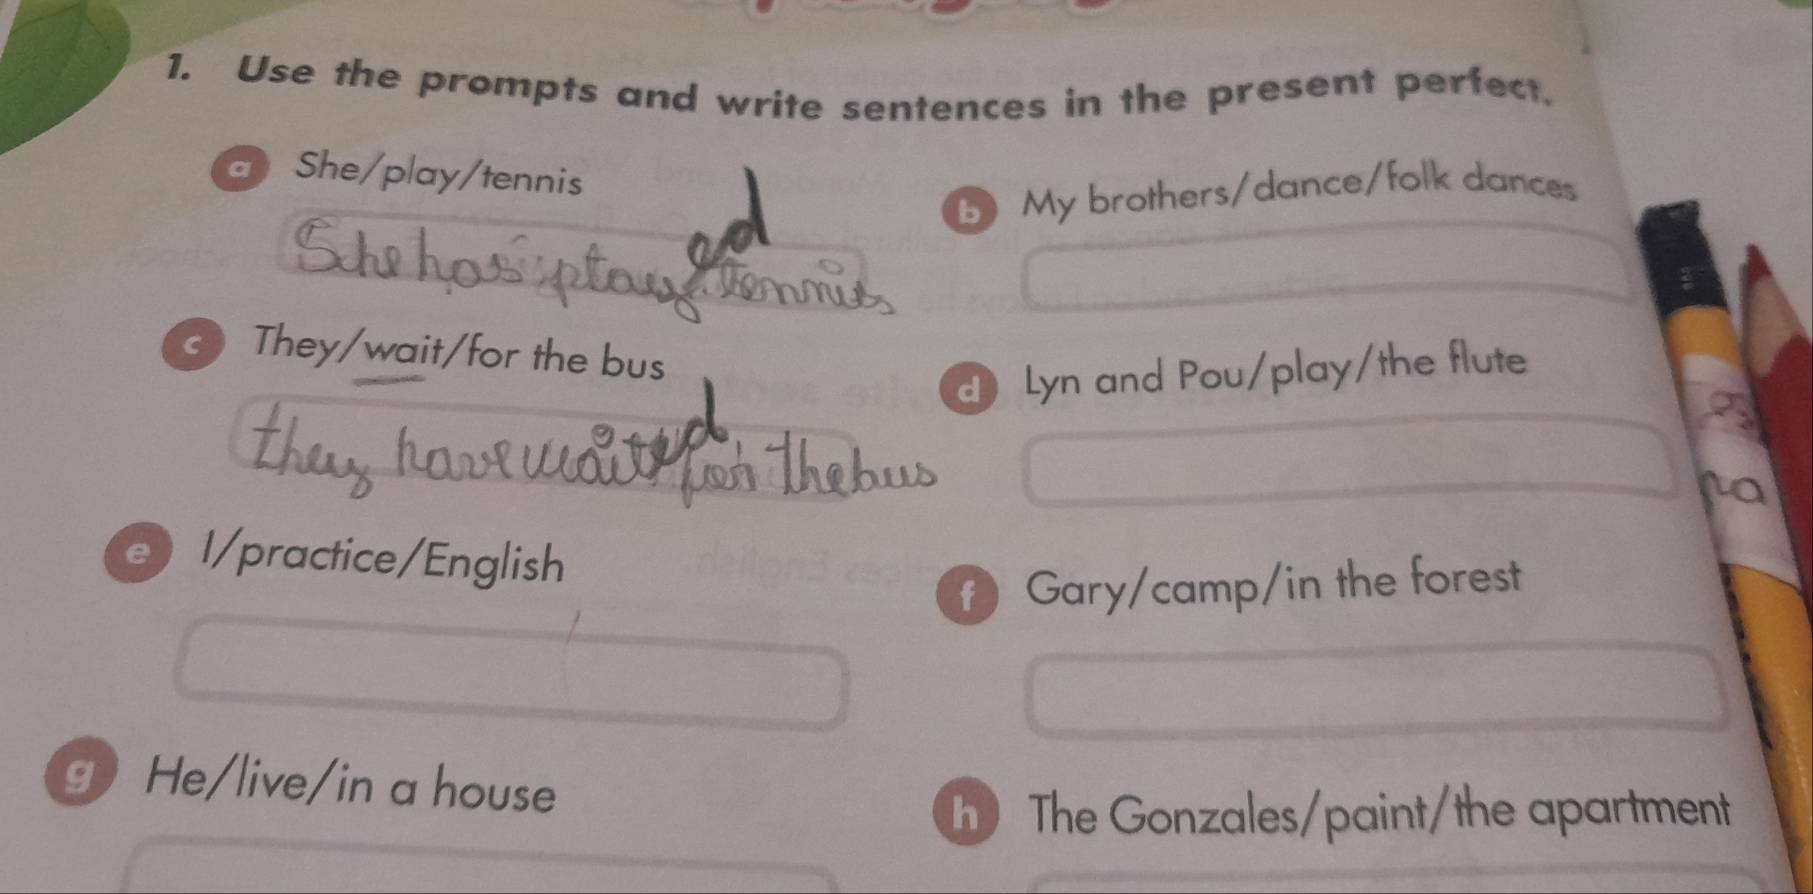 1. Use the prompts and write sentences in the present perfect.
a She/play/tennis
She has played tennis
b My brothers/dance/folk dances
c They/wait/for the bus
they have waited for the bus
d Lyn and Pou/play/the flute
e I/practice/English
f Gary/camp/in the forest
g He/live/in a house
h The Gonzales/paint/the apartment